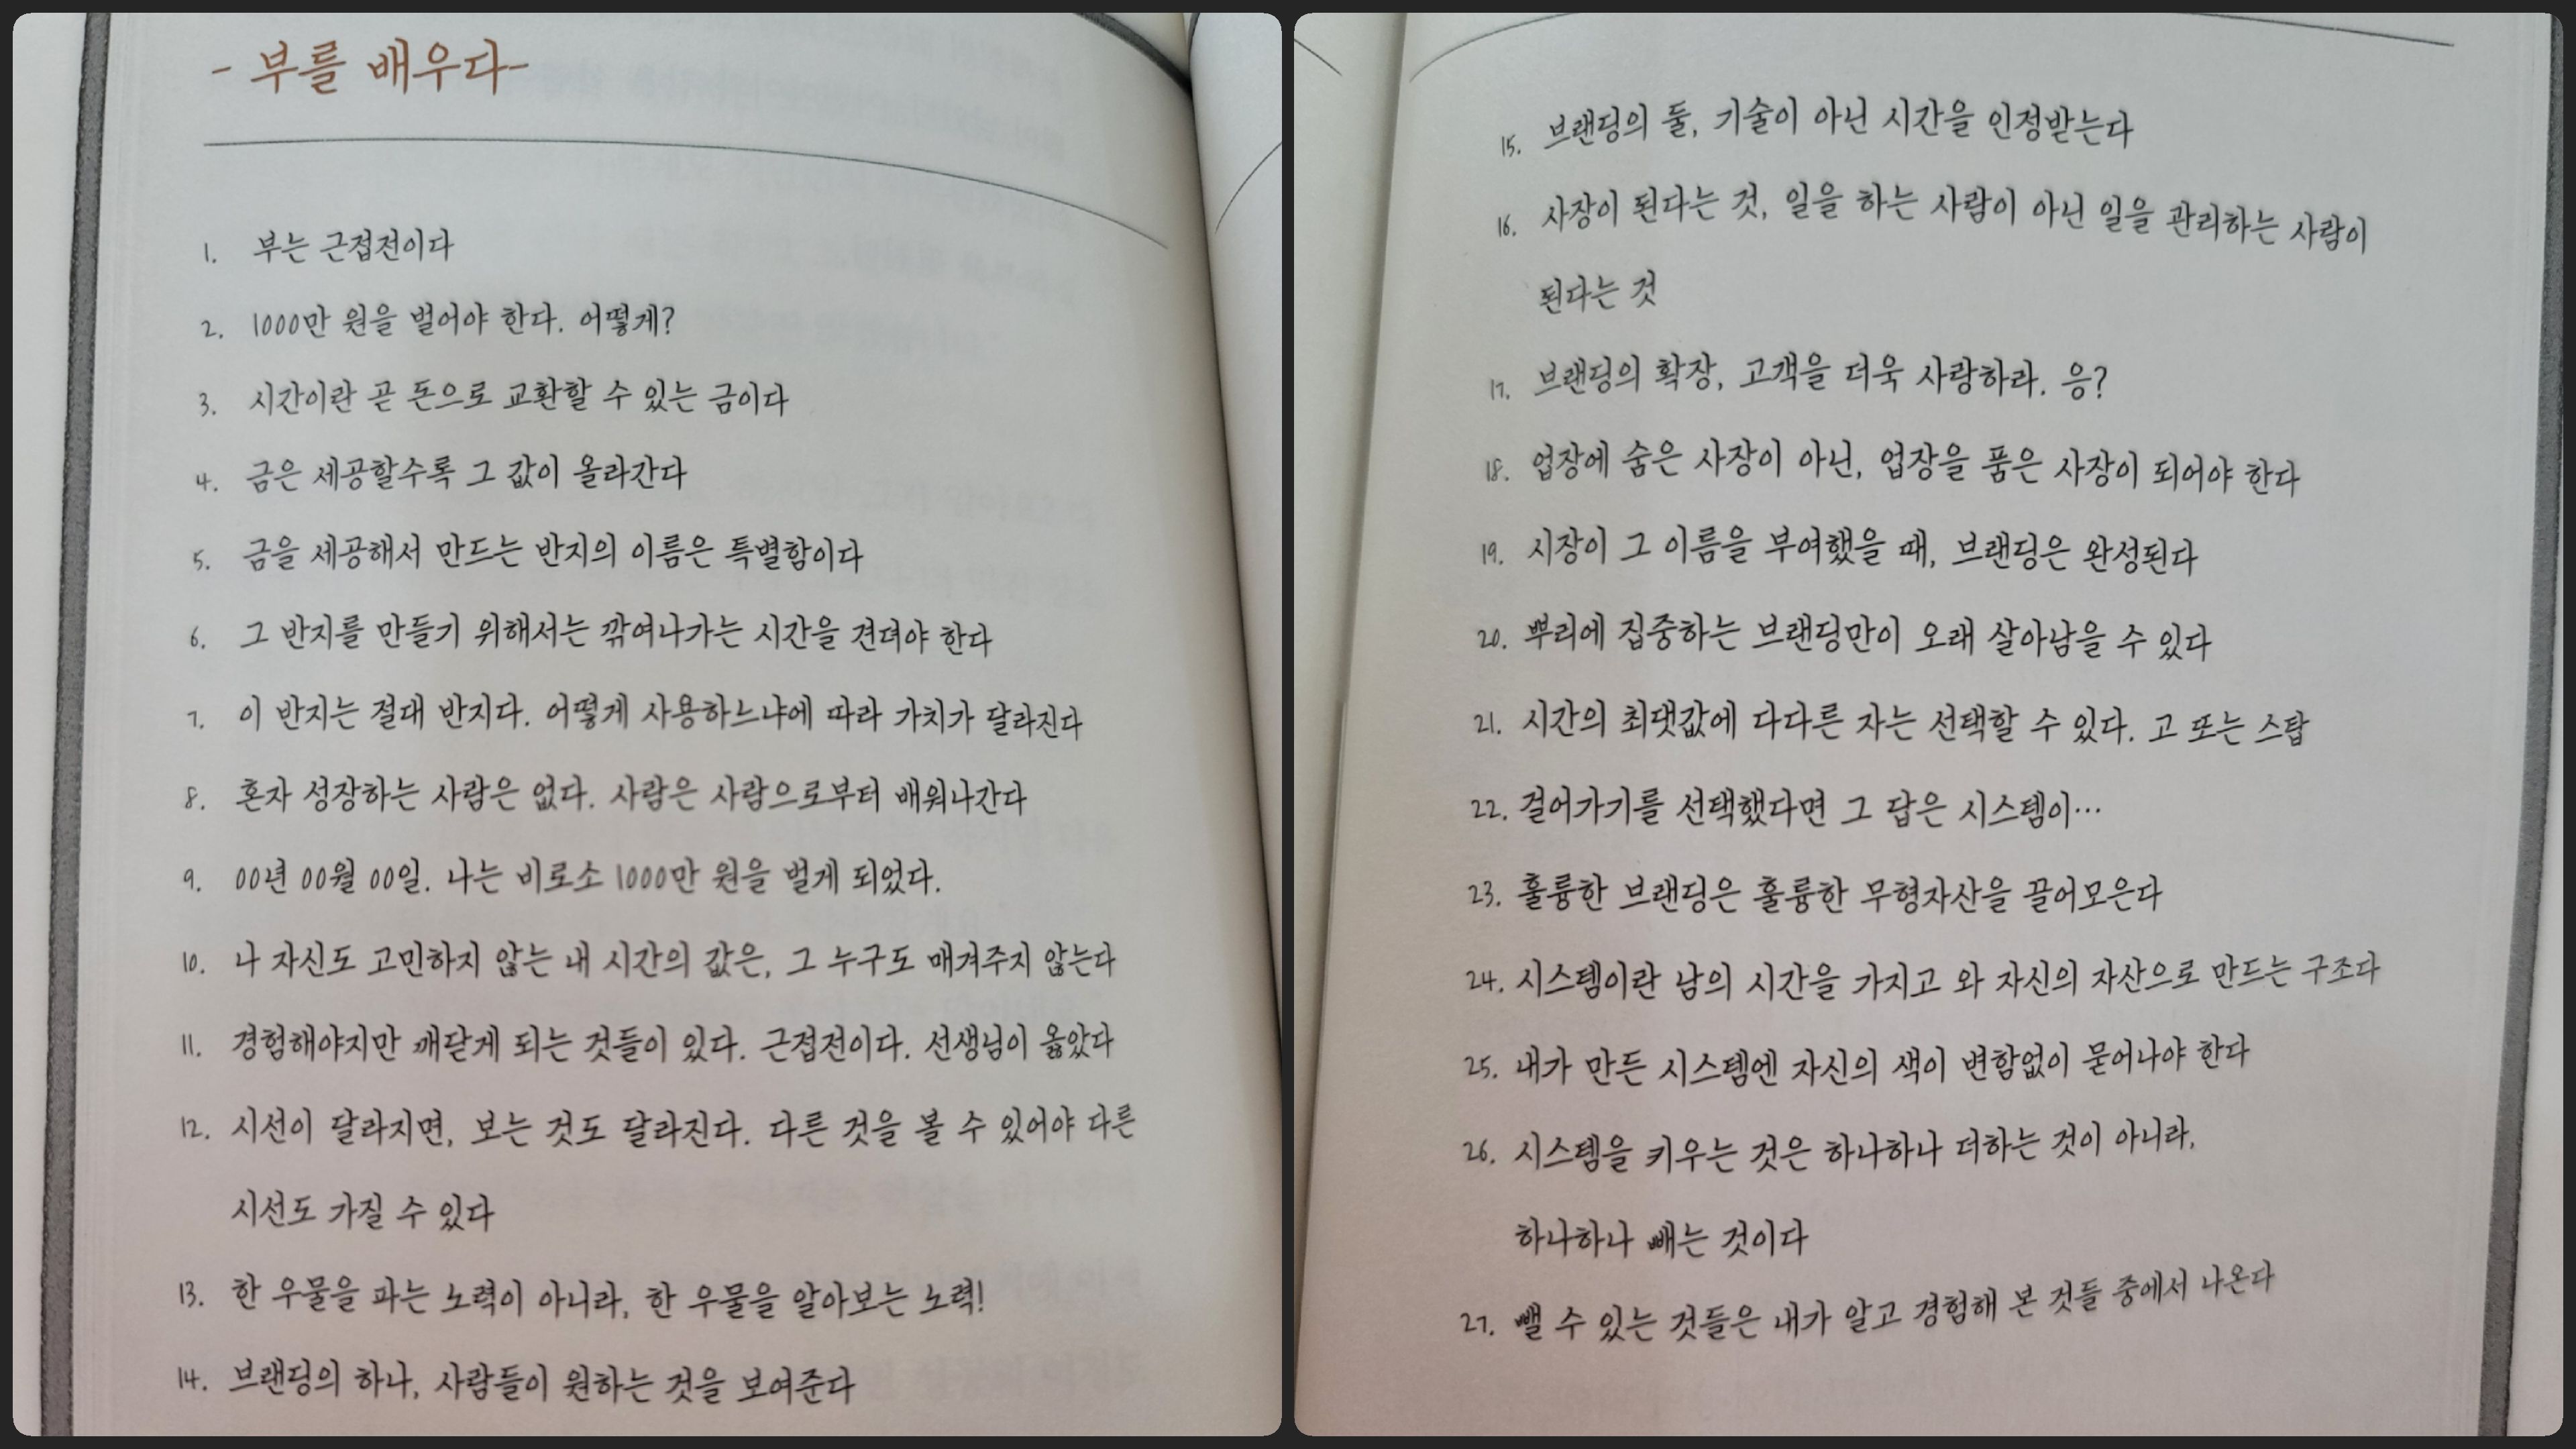 - 부를 배우다-
1. 부는 근접전이다
2. 1000만 원을 벌어야 한다. 어떻게?
3. 시간이란 곧 돈으로 교환할 수 있는 금이다
4. 금은 세공할수록 그 값이 올라간다
5. 금을 세공해서 만드는 반지의 이름은 특별함이다
6. 그 반지를 만들기 위해서는 깎여나가는 시간을 견뎌야 한다
7. 이 반지는 절대 반지다. 어떻게 사용하느냐에 따라 가치가 달라진다
8. 혼자 성장하는 사람은 없다. 사람은 사람으로부터 배워나간다
9. 00년 00월 00일. 나는 비로소 1000만 원을 벌게 되었다.
10. 나 자신도 고민하지 않는 내 시간의 값은, 그 누구도 매겨주지 않는다
11. 경험해야지만 깨닫게 되는 것들이 있다. 근접전이다. 선생님이 옳았다
12. 시선이 달라지면, 보는 것도 달라진다. 다른 것을 볼 수 있어야 다른
시선도 가질 수 있다
13. 한 우물을 파는 노력이 아니라, 한 우물을 알아보는 노력!
14. 브랜딩의 하나, 사람들이 원하는 것을 보여준다
15. 브랜딩의 둘, 기술이 아닌 시간을 인정받는다
16. 사장이 된다는 것, 일을 하는 사람이 아닌 일을 관리하는 사람이
된다는 것
17. 브랜딩의 확장, 고객을 더욱 사랑하라. 응?
18. 업장에 숨은 사장이 아닌, 업장을 품은 사장이 되어야 한다
19. 시장이 그 이름을 부여했을 때, 브랜딩은 완성된다
20. 뿌리에 집중하는 브랜딩만이 오래 살아남을 수 있다
21. 시간의 최댓값에 다다른 자는 선택할 수 있다. 고 또는 스탑
22. 걸어가기를 선택했다면 그 답은 시스템이…
23. 훌륭한 브랜딩은 훌륭한 무형자산을 끌어모은다
24. 시스템이란 남의 시간을 가지고 와 자신의 자산으로 만드는 구조다
25. 내가 만든 시스템엔 자신의 색이 변함없이 묻어나야 한다
26. 시스템을 키우는 것은 하나하나 더하는 것이 아니라,
하나하나 빼는 것이다
27. 뺄 수 있는 것들은 내가 알고 경험해 본 것들 중에서 나온다